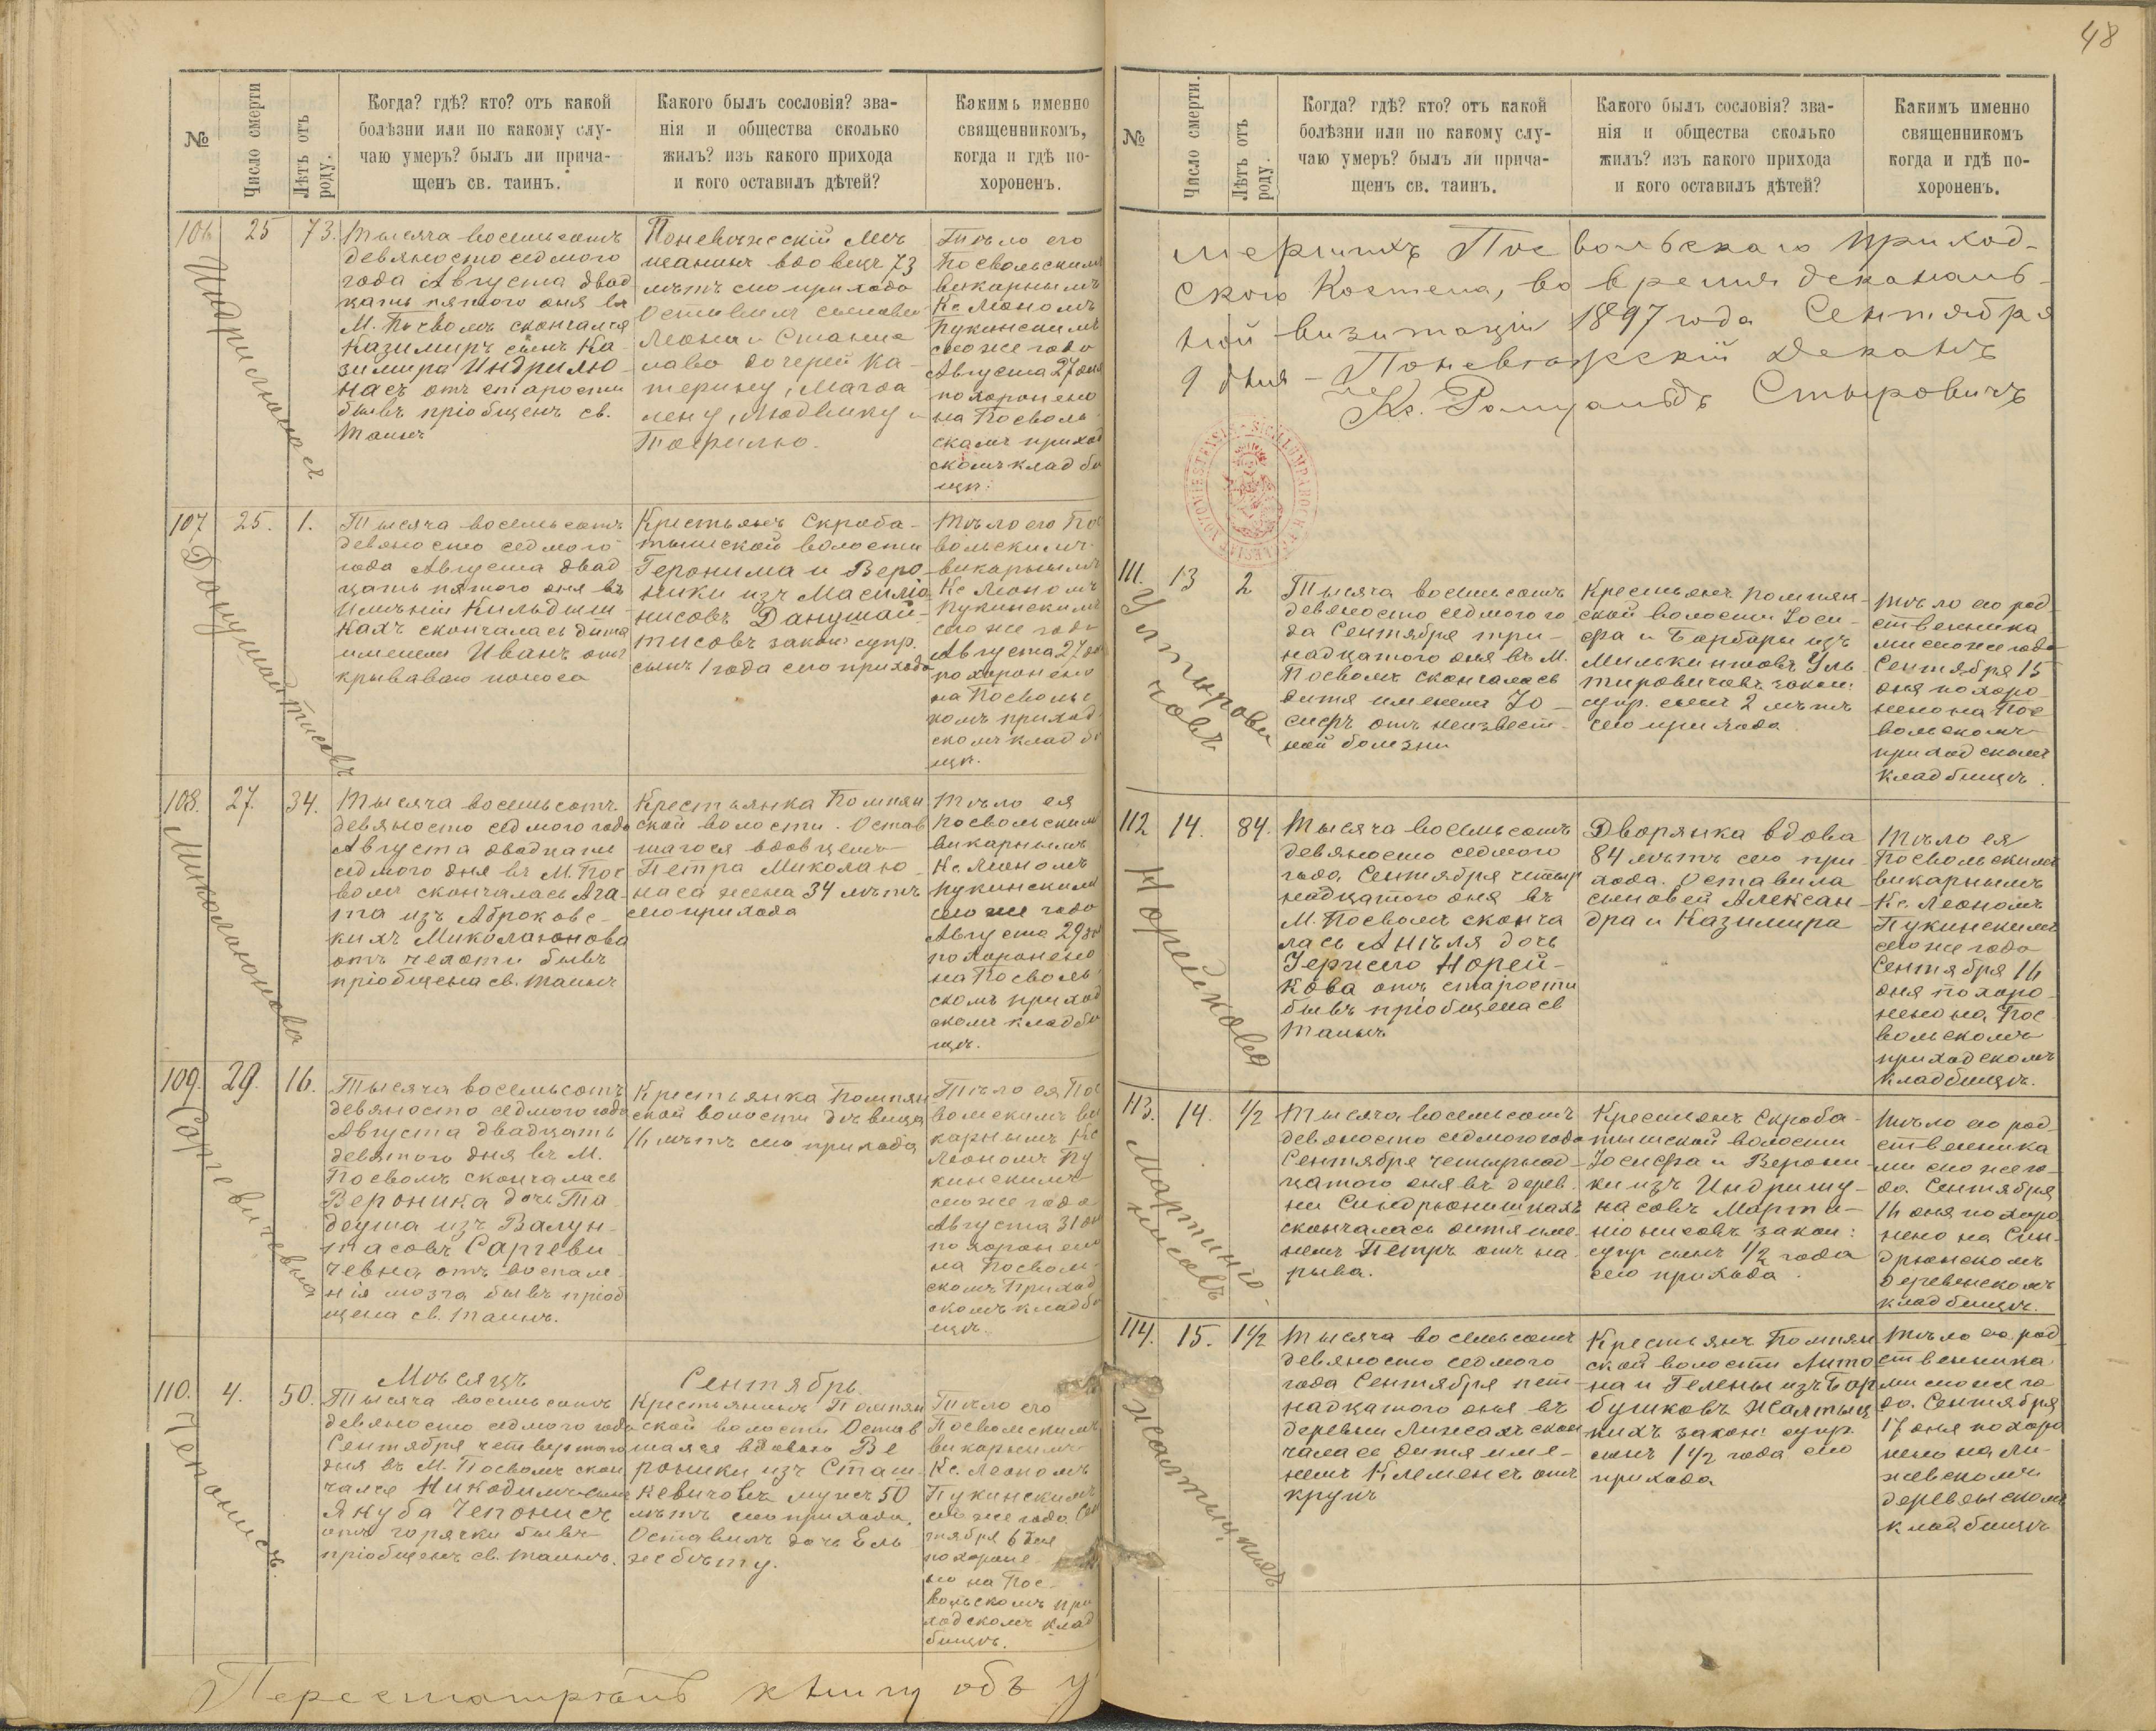 48
№
Число смерти
Лѣтъ отъ роду.
Когда? гдѣ? кто? отъ какой
болѣзни или по какому слу-
чаю умеръ? былъ ли прича-
щенъ св. таинъ.
Какого былъ сословія? зва-
нія и общества сколько
жилъ? изъ какого прихода
и кого оставилъ дѣтей?
Какимъ именно
священникомъ,
когда и гдѣ по-
хороненъ.
106
25
73.
Индрилюнасъ
Тысяча восемьсотъ
девяносто седмого
года Августа двад
цать пятого дня въ
М. Посволѣ скончался
Казимиръ сынъ Ка
зимира Индрилю-
насъ отъ старости
бывъ пріобщенъ св.
Таинъ
Поневѣжескій Мѣ
щанинъ вдовецъ 73
лѣтъ сего прихода
Оставилъ сыновей
Леона и Станис
лава дочерей Ка-
терину, Магда
лену, Людвику и
Теофилю.
Тѣло его
Посвольскимъ
викарнымъ
Кс. Леономъ
Пукинскимъ
сего же года
Августа 27 дня
похоронено
на Посволь
скомъ приход
скомъ кладби
щѣ.
107
25.
1.
Данушайтисовъ
Тысяча восемьсотъ
девяносто седмого
года Августа двад
цать пятого дня въ
Имѣніи Кильдиш-
кахъ скончалась дитя
именемъ Иванъ отъ
крываваго поноса
Крестьянъ Скроба-
тышской волости
Геронима и Веро-
ники изъ Масилю
нисовъ Данушай-
тисовъ закон: супр.
сынъ 1 года сего прихода
Тѣло его Пос
вольскимъ
викарнымъ
Кс. Леономъ
Пукинскимъ
сего же года
Августа 27 дня
похоронено
на Посвольс
комъ приход
скомъ кладби
щѣ.
108.
27.
34.
Миколаюнова
Тысяча восемьсотъ
девяносто седмого года
Августа двадцать
седмого дня въ М. Пос
волѣ скончалась Ага-
та изъ Аброковс-
кихъ Миколаюнова
отъ чехоти бывъ
пріобщена св. Таинъ
Крестьянка Помпян
ской волости. Остав
шагося вдовцемъ
Петра Миколаю-
наса жена 34 лѣтъ
сего прихода
Тѣло ея
Посвольскимъ
викарнымъ
Кс. Леономъ
Пукинскимъ
сего же года
Августа 29 дня
похоронено
на Посволь
скомъ приход
скомъ кладби
щѣ.
109.
29.
16.
Саргевичевна
Тысяча восемьсотъ
девяносто седмого года
Августа двадцать
девятого дня въ М.
Посволѣ скончалась
Вероника дочь Та
деуша изъ Валун-
тасовъ Саргеви
чевна отъ воспале
нія мозга бывъ пріоб
щена св. Таинъ.
Крестьянка Помпян
ской волости дѣвица
16 лѣтъ сего прихода
Тѣло ея Пос
вольскимъ ви
карнымъ Кс
Леономъ Пу
кинскимъ
сего же года
Августа 31 дня
похоронено
на Посволь-
скомъ Приход
скомъ кладби
щѣ.
Мѣсяцъ Сентябрь
110.
4.
50.
Чепонисъ
Тысяча восемьсотъ
девяносто седмого года
Сентября четвертого
дня въ М. Посволѣ скон
чался Никодимъ сынъ
Якуба Чепонисъ
отъ горячки бывъ
пріобщенъ св. Таинъ.
Крестьянинъ Помпян
ской волости Остав
шаяся вдовою Ве
роники изъ Сташ-
кевичовъ мужъ 50
лѣтъ сего прихода.
Оставилъ дочь Ель
жбѣту.
Тѣло его
Посвольскимъ
викарнымъ
Кс. Леономъ
Пукинскимъ
сего же года Сен
тября 6 дня
похороне
но на Пос-
вольскомъ при
ходскомъ клад
бищѣ.
Пересматривалъ книгу объ у
№
Число смерти.
Лѣтъ отъ роду.
Когда? гдѣ? кто? отъ какой
болѣзни или по какому слу-
чаю умеръ? былъ ли прича-
щенъ св. таинъ.
Какого былъ сословія? зва-
нія и общества сколько
жилъ? изъ какого прихода
и кого оставилъ дѣтей?
Какимъ именно
священникомъ
когда и гдѣ по-
хороненъ.
мершихъ Посвольскаго приход-
ского Костела, во время деканаль-
ной визитаціи 1897 года Сентября
9 дня – Поневѣжскій Деканъ
Кс. Ромуальдъ Стыровичъ
111.
13
2
Тысяча восемьсотъ
девяносто седмого го
да Сентября три-
надцатого дня въ М.
Посволѣ скончалась
дитя именемъ Іо-
сифъ отъ неизвест-
ной болезни
Крестьянъ Помпян-
ской волости Іоси-
фа и Барбары изъ
Милькинтовъ Уль-
тировичовъ закон:
супр. сынъ 2 лѣтъ
сего прихода
Тѣло его род-
ственника
ми сего же года
Сентября 15
дня похоро-
нено на Пос
вольскомъ
приходскомъ
кладбищѣ.
112
14.
84.
Норейкова
Тысяча восемьсотъ
девяносто седмого
года Сентября четыр
надцатого дня въ
М. Посволѣ сконча
лась Анѣля дочь
Іержего Норей-
кова отъ старости
бывъ пріобщена св
Таинъ
Дворянка вдова
84 лѣтъ сего при
хода. Оставила
сыновей Алексан-
дра и Казимира
Тѣло ея
Посвольскимъ
викарнымъ
Кс. Леономъ
Пукинскимъ
сего же года
Сентября 16
дня похоро-
нено на Пос
вольскомъ
приходскомъ
кладбищѣ.
113.
14.
1/2
Мартинѣо-
нисовъ
Тысяча восемьсотъ
девяносто седмого года
Сентября четырнад-
цатого дня въ дерев.
ни Синдрюнишкахъ
скончалась дитя име-
немъ Петръ отъ на-
рыва.
Крестьянъ Скроба-
тышской волости
Іосифа и Верони-
ки изъ Индришу-
насовъ Марти-
ніонисовъ закон:
супр сынъ 1/2 года
сего прихода.
Тѣло его род-
ственника
ми сего же го-
да. Сентября
16 дня похоро
нено на Син-
дрюнскомъ
деревенскомъ
кладбищѣ.
114.
15.
1 1/2
Тысяча восемьсотъ
девяносто седмого
года Сентября пят-
надцатого дня въ
деревни Лижахъ скон
чалась дитя име-
немъ Клеменсъ отъ
крупъ
Крестьянъ Помпян
ской волости Анто
на и Гелены изъ Бар
бушковъ Жалтыц
кихъ закон: супр.
сынъ 1 1/2 года сего
прихода
Тѣло его род
ственника
ми сего же го-
да. Сентября
17 дня похоро
нено на Ли-
жевскомъ
деревенскомъ
кладбищѣ